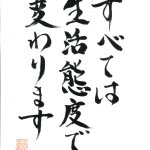 すべては
生活態度で
変わります